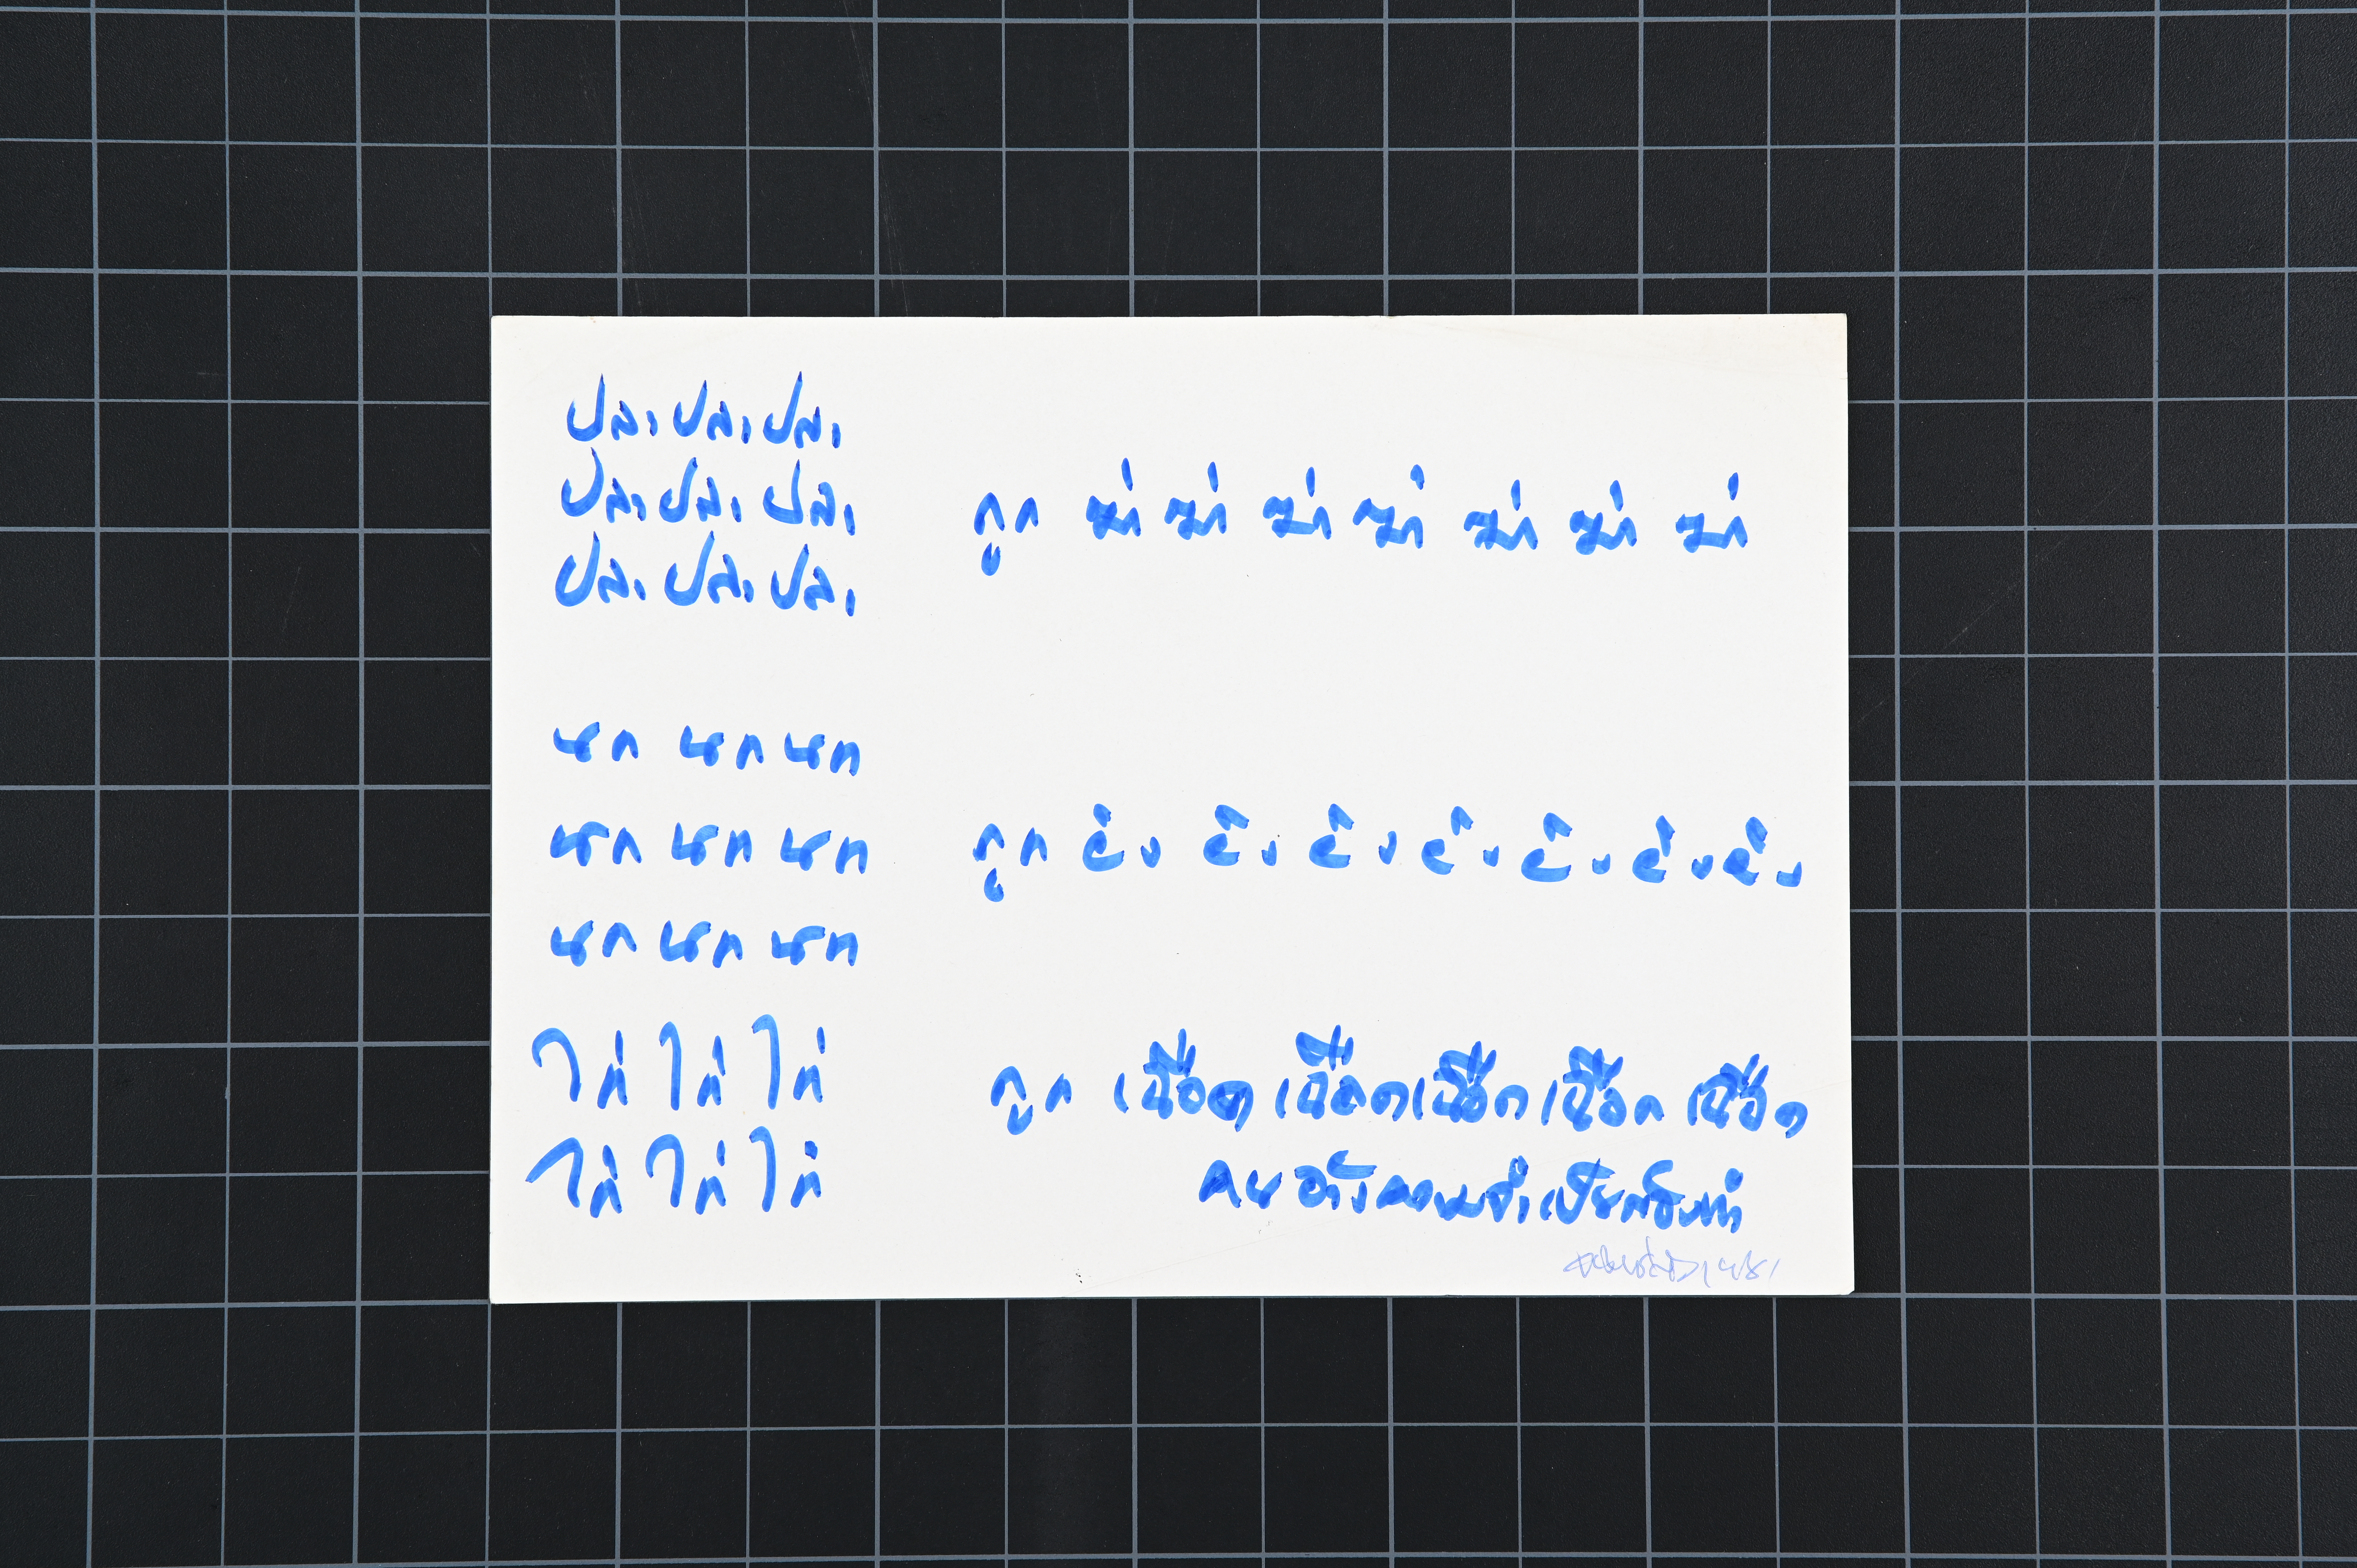 ปลา ปลา ปลา
ปลา ปลา ปลา
ปลา ปลา ปลา
ถูก ฆ่า ฆ่า ฆ่า ฆ่า ฆ่า ฆ่า ฆ่า
นก นก นก
นก นก นก
นก นก นก
ถูก ยิง ยิง ยิง ยิง ยิง ยิง ยิง
ไก่ ไก่ ไก่
ไก่ ไก่ ไก่
ถูก เชือด เชือด เชือด เชือด เชือด
คน อ้างความจำเป็นต้องทำ